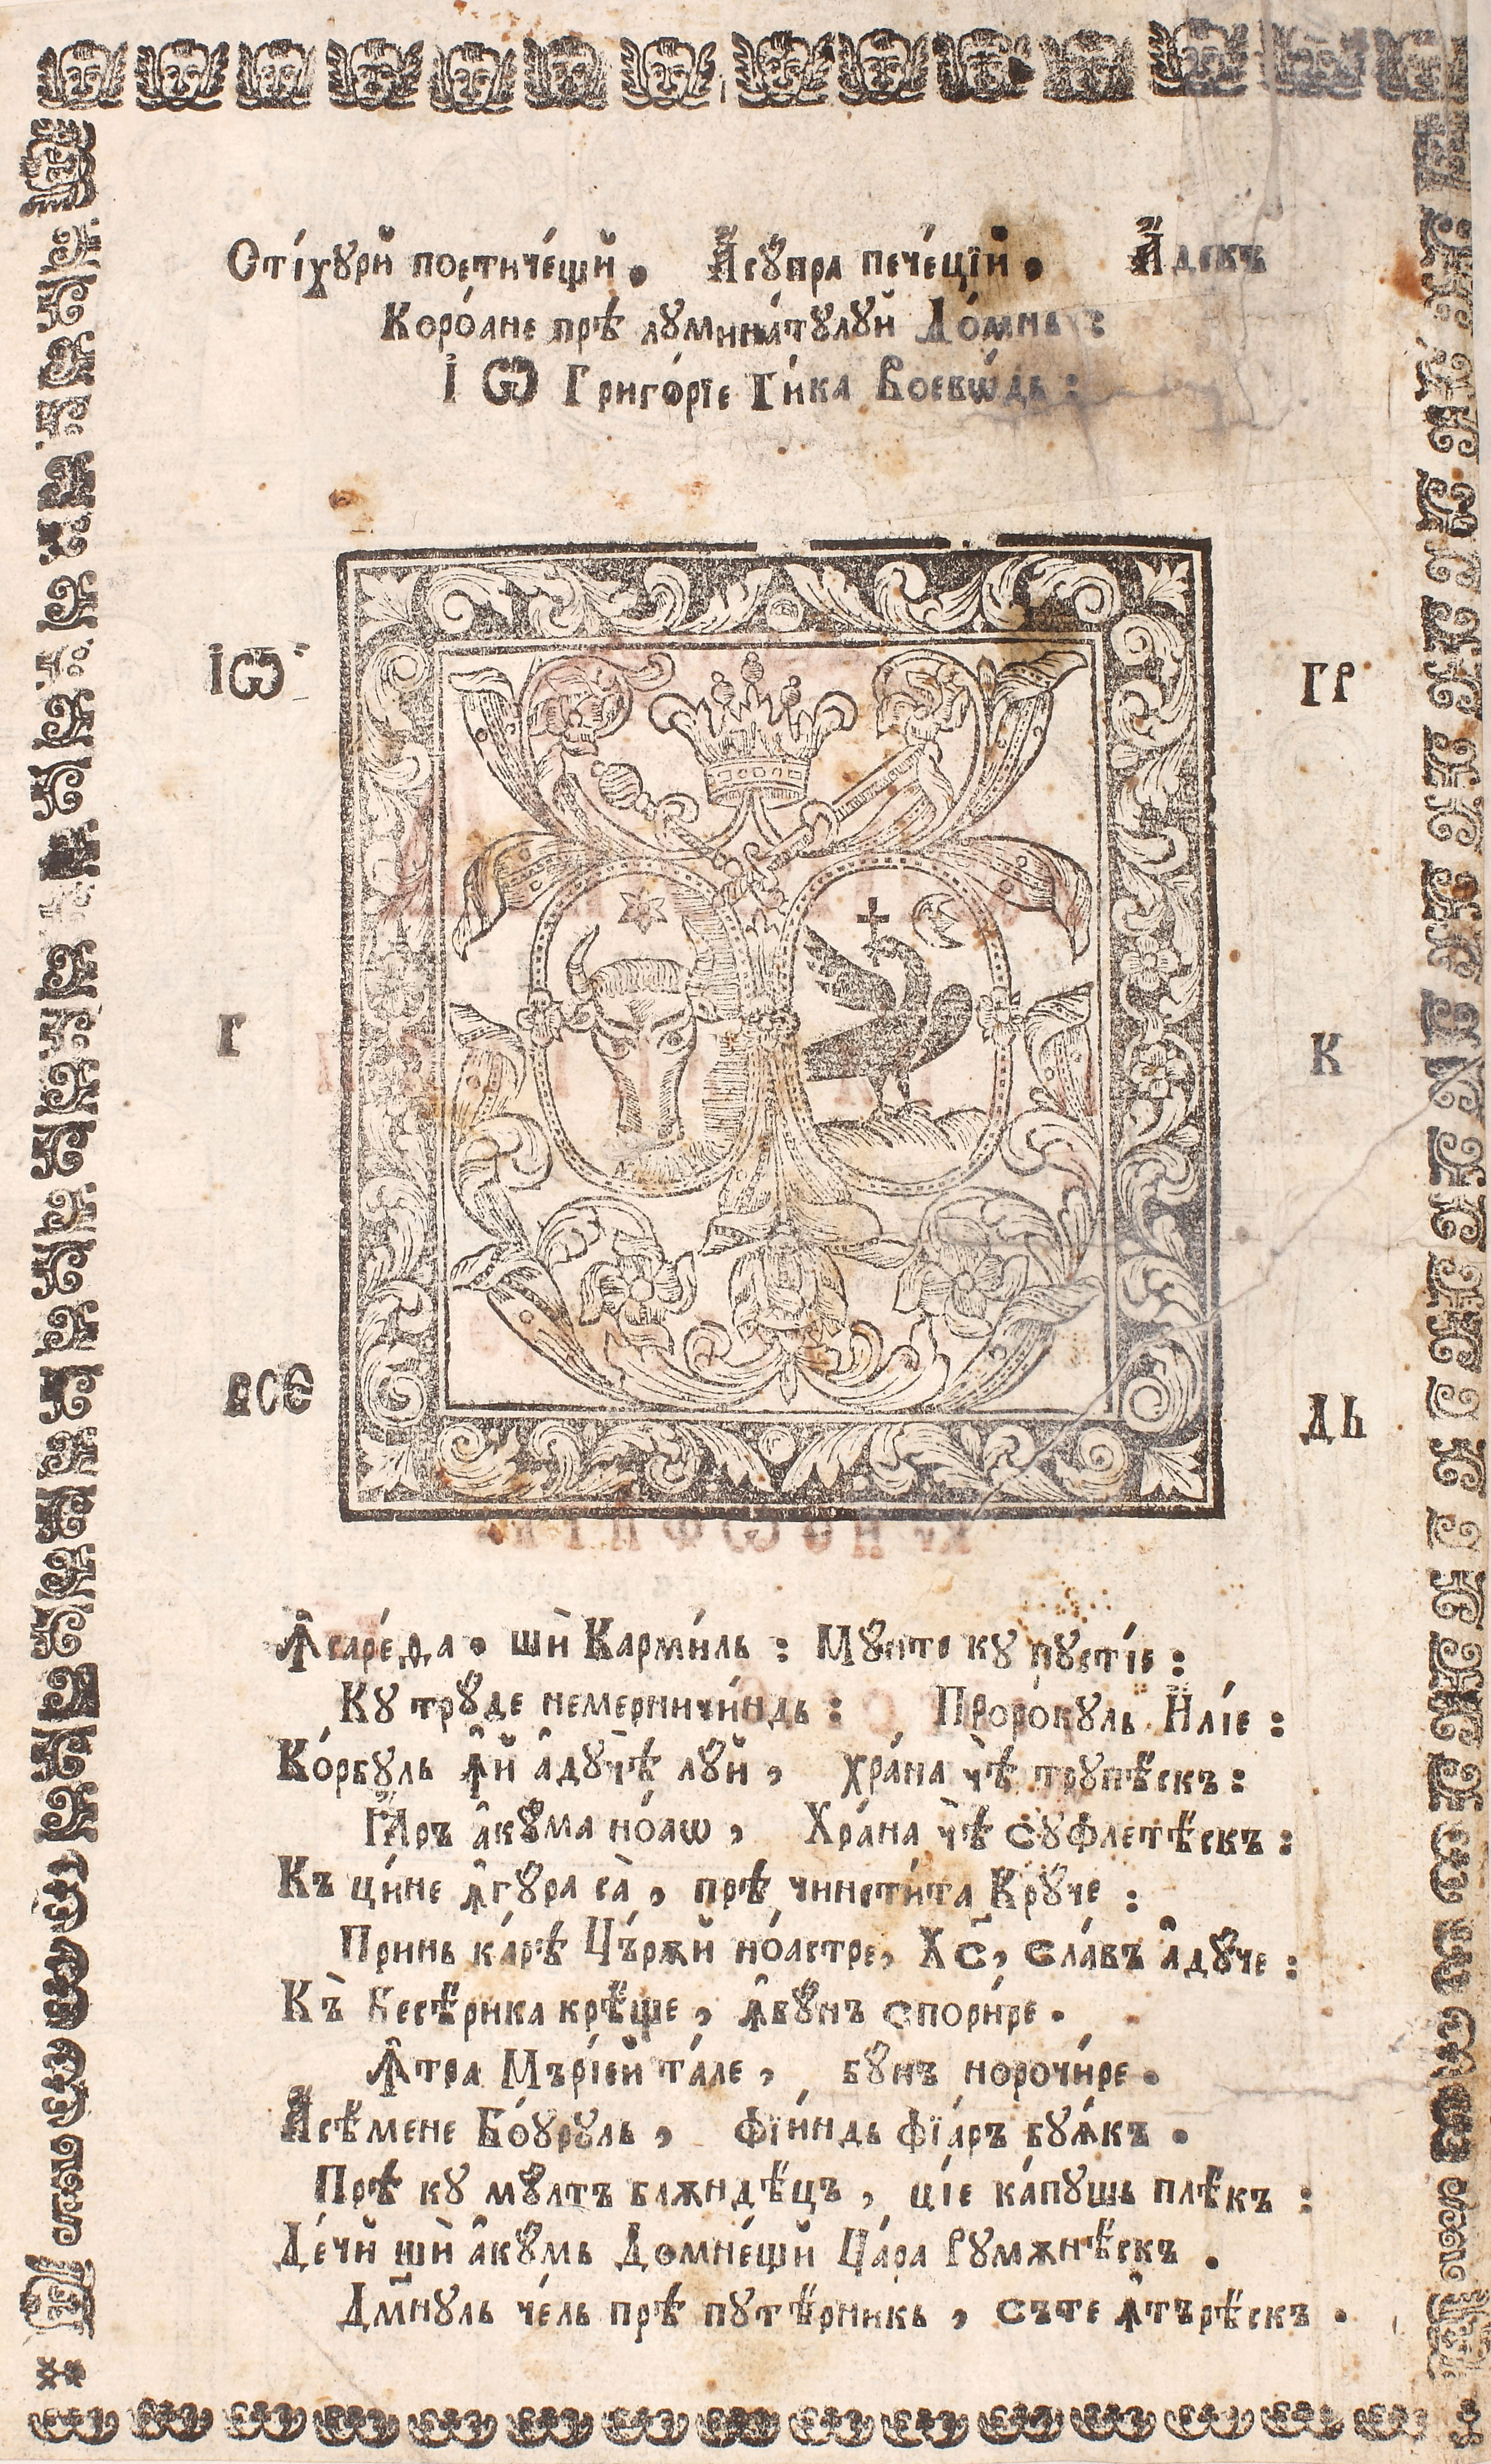 Стіхꙋри поетичéщй. Асꙋ́пра печéцїй. Адекъ
Корóане прѣ лꙋминáтꙋлꙋй Дóмнь :
І Ѡ Григóрїе Гика Воевѡ́дь :
ІѠ ГР
Г К
ВОЄ ДЬ
Ꙟсарéѳа. шѝ Карми́ль : Мꙋ́нте кꙋ пꙋстíе :
Кꙋ трꙋ́де немерничи́ндь : Прорóкꙋль Илíе :
Кóрбꙋль ꙟ҆й а҆дꙋчѣ̀ лꙋй , хрáна чѣ̀ трꙋпѣ́скъ :
Ꙗръ а҆кꙋ́ма нóаѡ , Хрáна чѣ̀ сꙋфлетѣ́скъ :
Къ ци́не ꙟ҆гꙋ́ра сà , прѣ̀ чинсти́та Крꙋ́че :
Принь кáрѣ Цъ́рѫй нóастре, Хс҃, слáвъ а҆дꙋ́че :
Къ̀ Бесѣ́рика крѣ́ще , ꙟ҆вꙋ́нъ спори́ре .
Ꙟ҆тра Мърíей тáле , бꙋнъ норочи́ре .
Асѣ́мене Бóꙋрꙋль , фїи́ндь фїáръ бꙋѧ́къ .
Прѣ́ кꙋ мꙋ́лтъ блѫндѣ́цъ , цíе кáпꙋшь плѣ́къ :
Дéчй шѝ а҆кꙋ́мь Домнéщй Цáра Рꙋмѫнѣ́скъ .
Дм҃нꙋль чéль прѣ̀ пꙋтѣ́рникь , съте ꙟ҆търѣ́скъ .